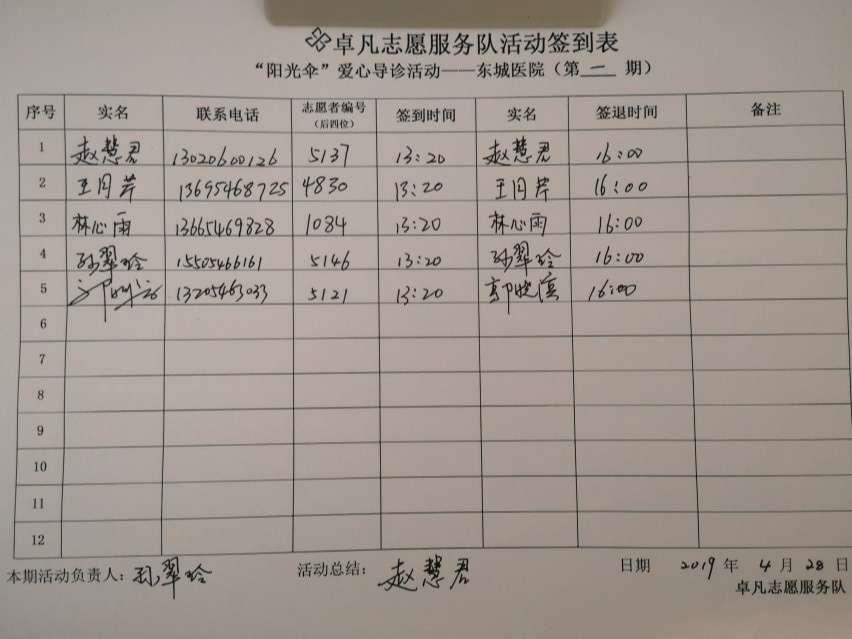 卓凡志愿服务队活动签到表
“阳光伞”爱心导诊活动——东城医院（第一期）
序号 实名 联系电话 志愿者编号（后四位） 签到时间 实名 签退时间 备注
1 赵慧君 13020600126 5137 13:20 赵慧君 16:00
2 王月芹 13695468725 4830 13:20 王月芹 16:00
3 林心雨 13665469828 1084 13:20 林心雨 16:00
4 孙翠玲 15505466161 5146 13:20 孙翠玲 16:00
5 13205463033 5121 13:20 郭晓滨 16:00
6
7
8
9
10
11
12
本期活动负责人：孙翠玲 活动总结：赵慧君 日期 2019年4月28日
卓凡志愿服务队